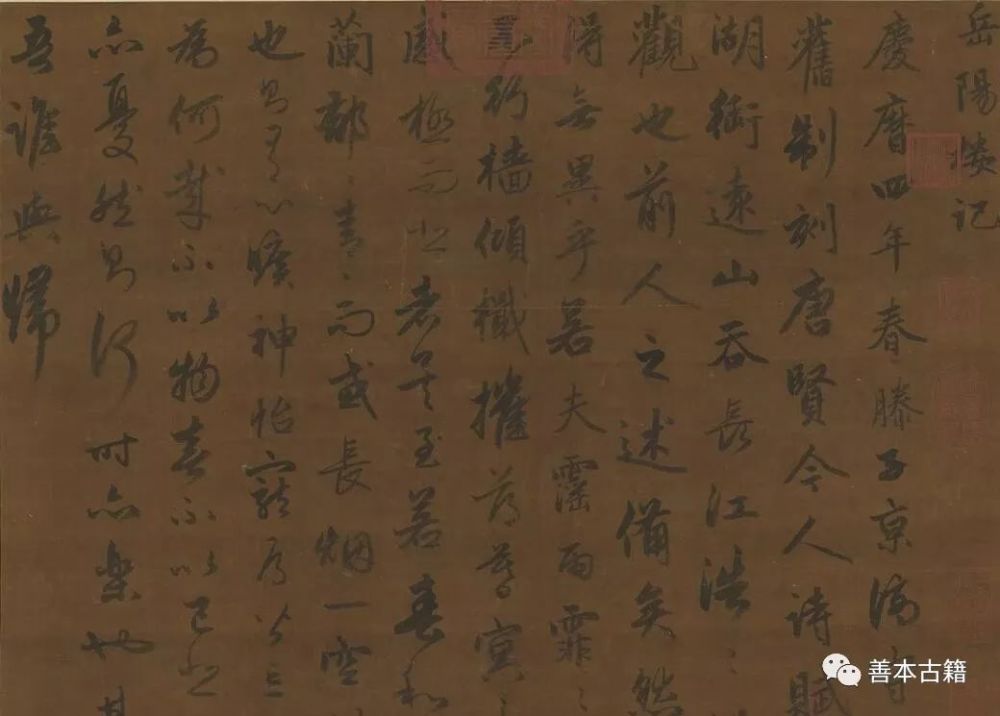 岳陽樓记
慶曆四年春滕子京謫守
舊制刻唐賢今人詩賦
湖銜遠山吞長江浩〻
觀也前人之述備矣然
得無異乎若夫霪雨霏〻
行檣傾檝摧薄暮冥〻
感極而悲者矣至若春和
蘭郁〻青〻而或長烟一空
也則有心曠神怡寵辱皆忘
為何哉不以物喜不以己悲
亦憂然則何時亦樂也其
吾誰與歸
善本古籍